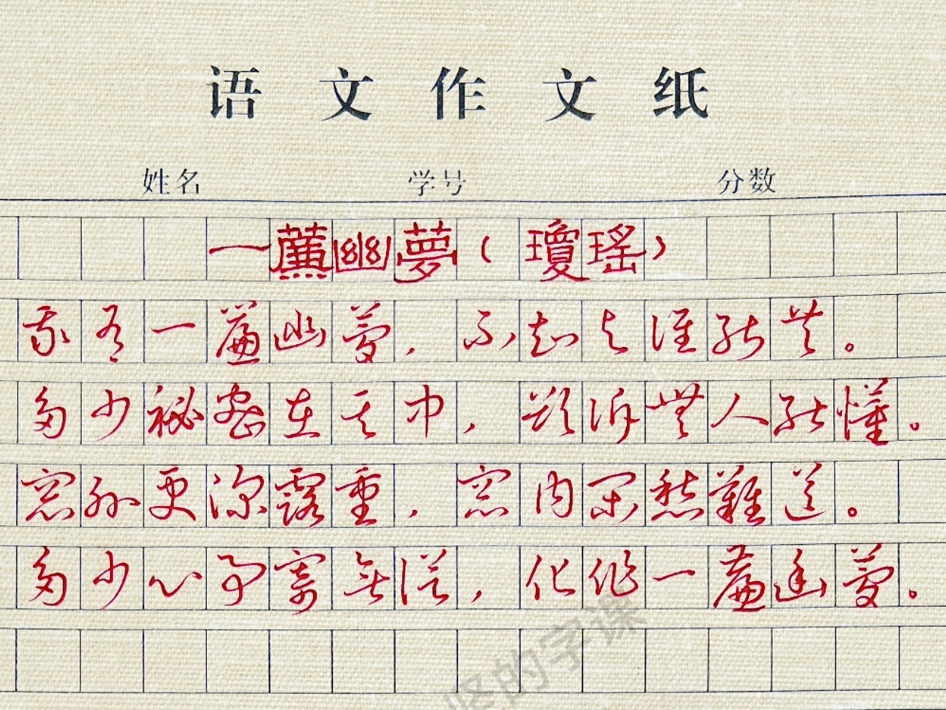 语文作文纸
姓名 学号 分数
一簾幽夢（瓊瑤）
我有一簾幽夢，不知與誰能共。
多少秘密在其中，欲訴無人能懂。
窓外更深露重，窓内閑愁難送。
多少心事寄無從，化作一簾幽夢。
坚的字课